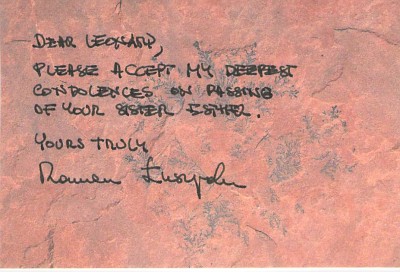 DEAR LEONARD,
PLEASE ACCEPT MY DEEPEST
CONDOLENCES ON PASSING
OF YOUR SISTER ESTHER.
YOURS TRULY
Roman